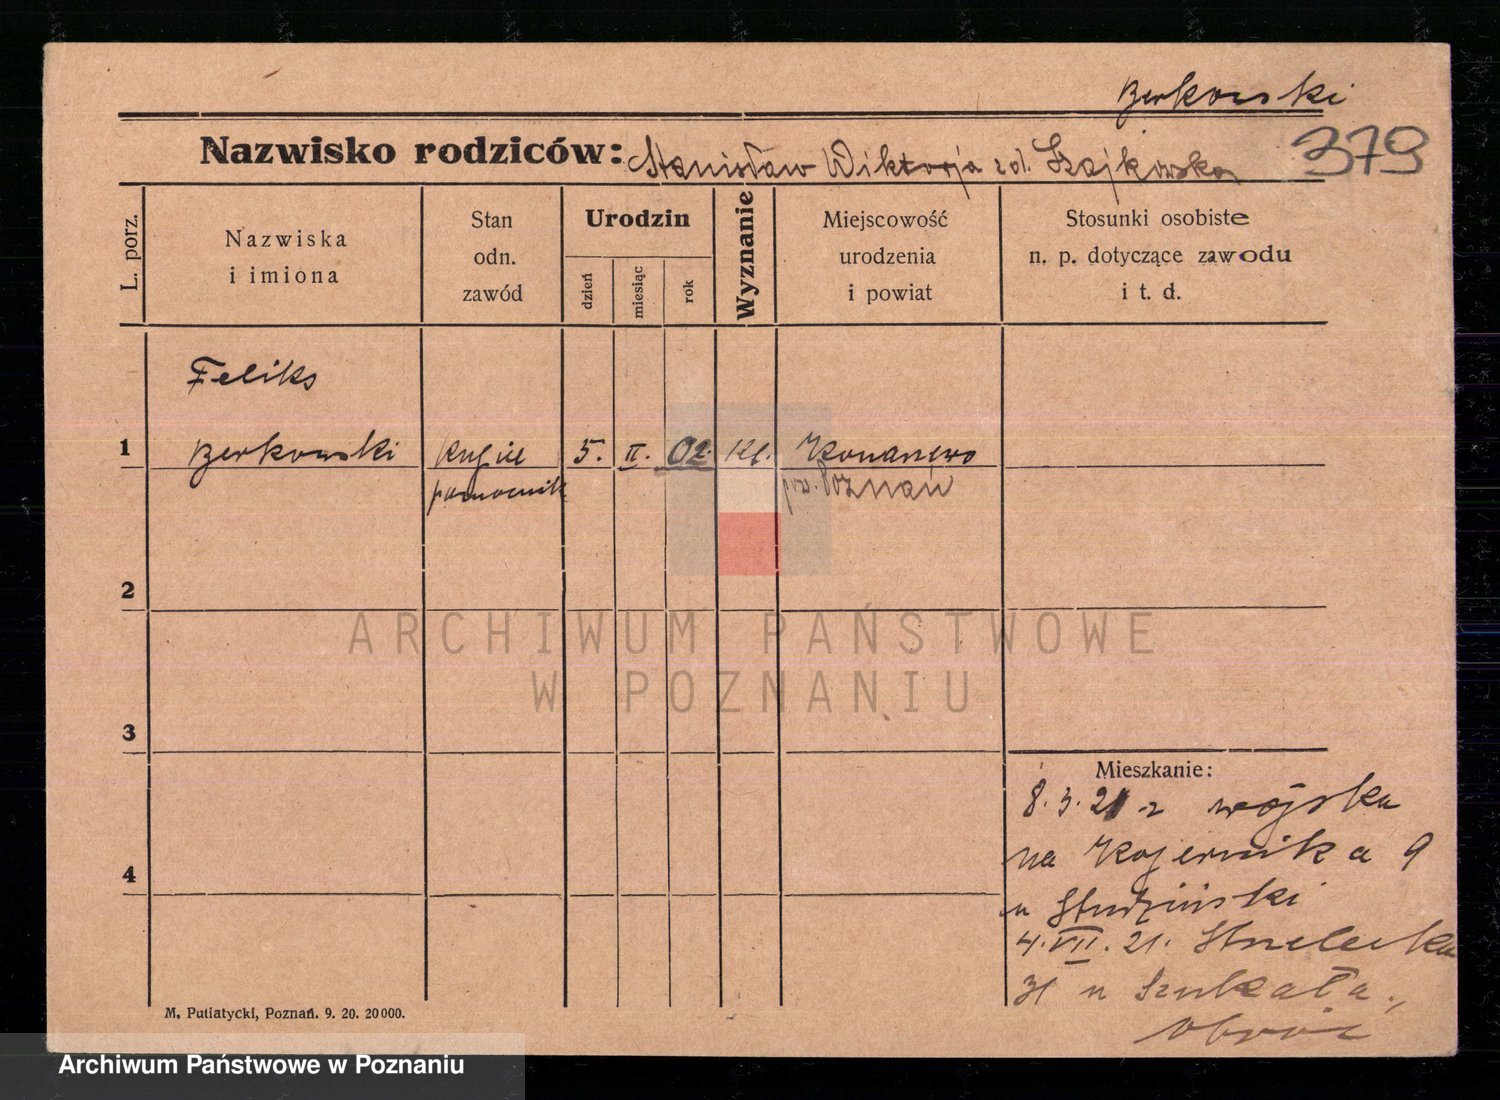 Berkowski
Nazwisko rodziców: Stanisław Wiktorja zd. Szajkowska 379
L. porz.
Nazwiska
i imiona
Stan
odn.
zawód
Urodzin
dzień
miesiąc
rok
Wyznanie
Miejscowość
urodzenia
i powiat
Stosunki osobiste
n. p. dotyczące zawodu
i t. d.
Feliks
1 Berkowski 5. II. 02.
pomocnik Poznań
2
3
4
Mieszkanie:
8. 3. 21 z wojska
na 9
u Studziński
4. VII. 21. Strzelecka
31 u Szukała.,
M. Putiatycki, Poznań. 9. 20. 20000.
ARCHIWUM PAŃSTWOWE
W POZNANIU
Archiwum Państwowe w Poznaniu